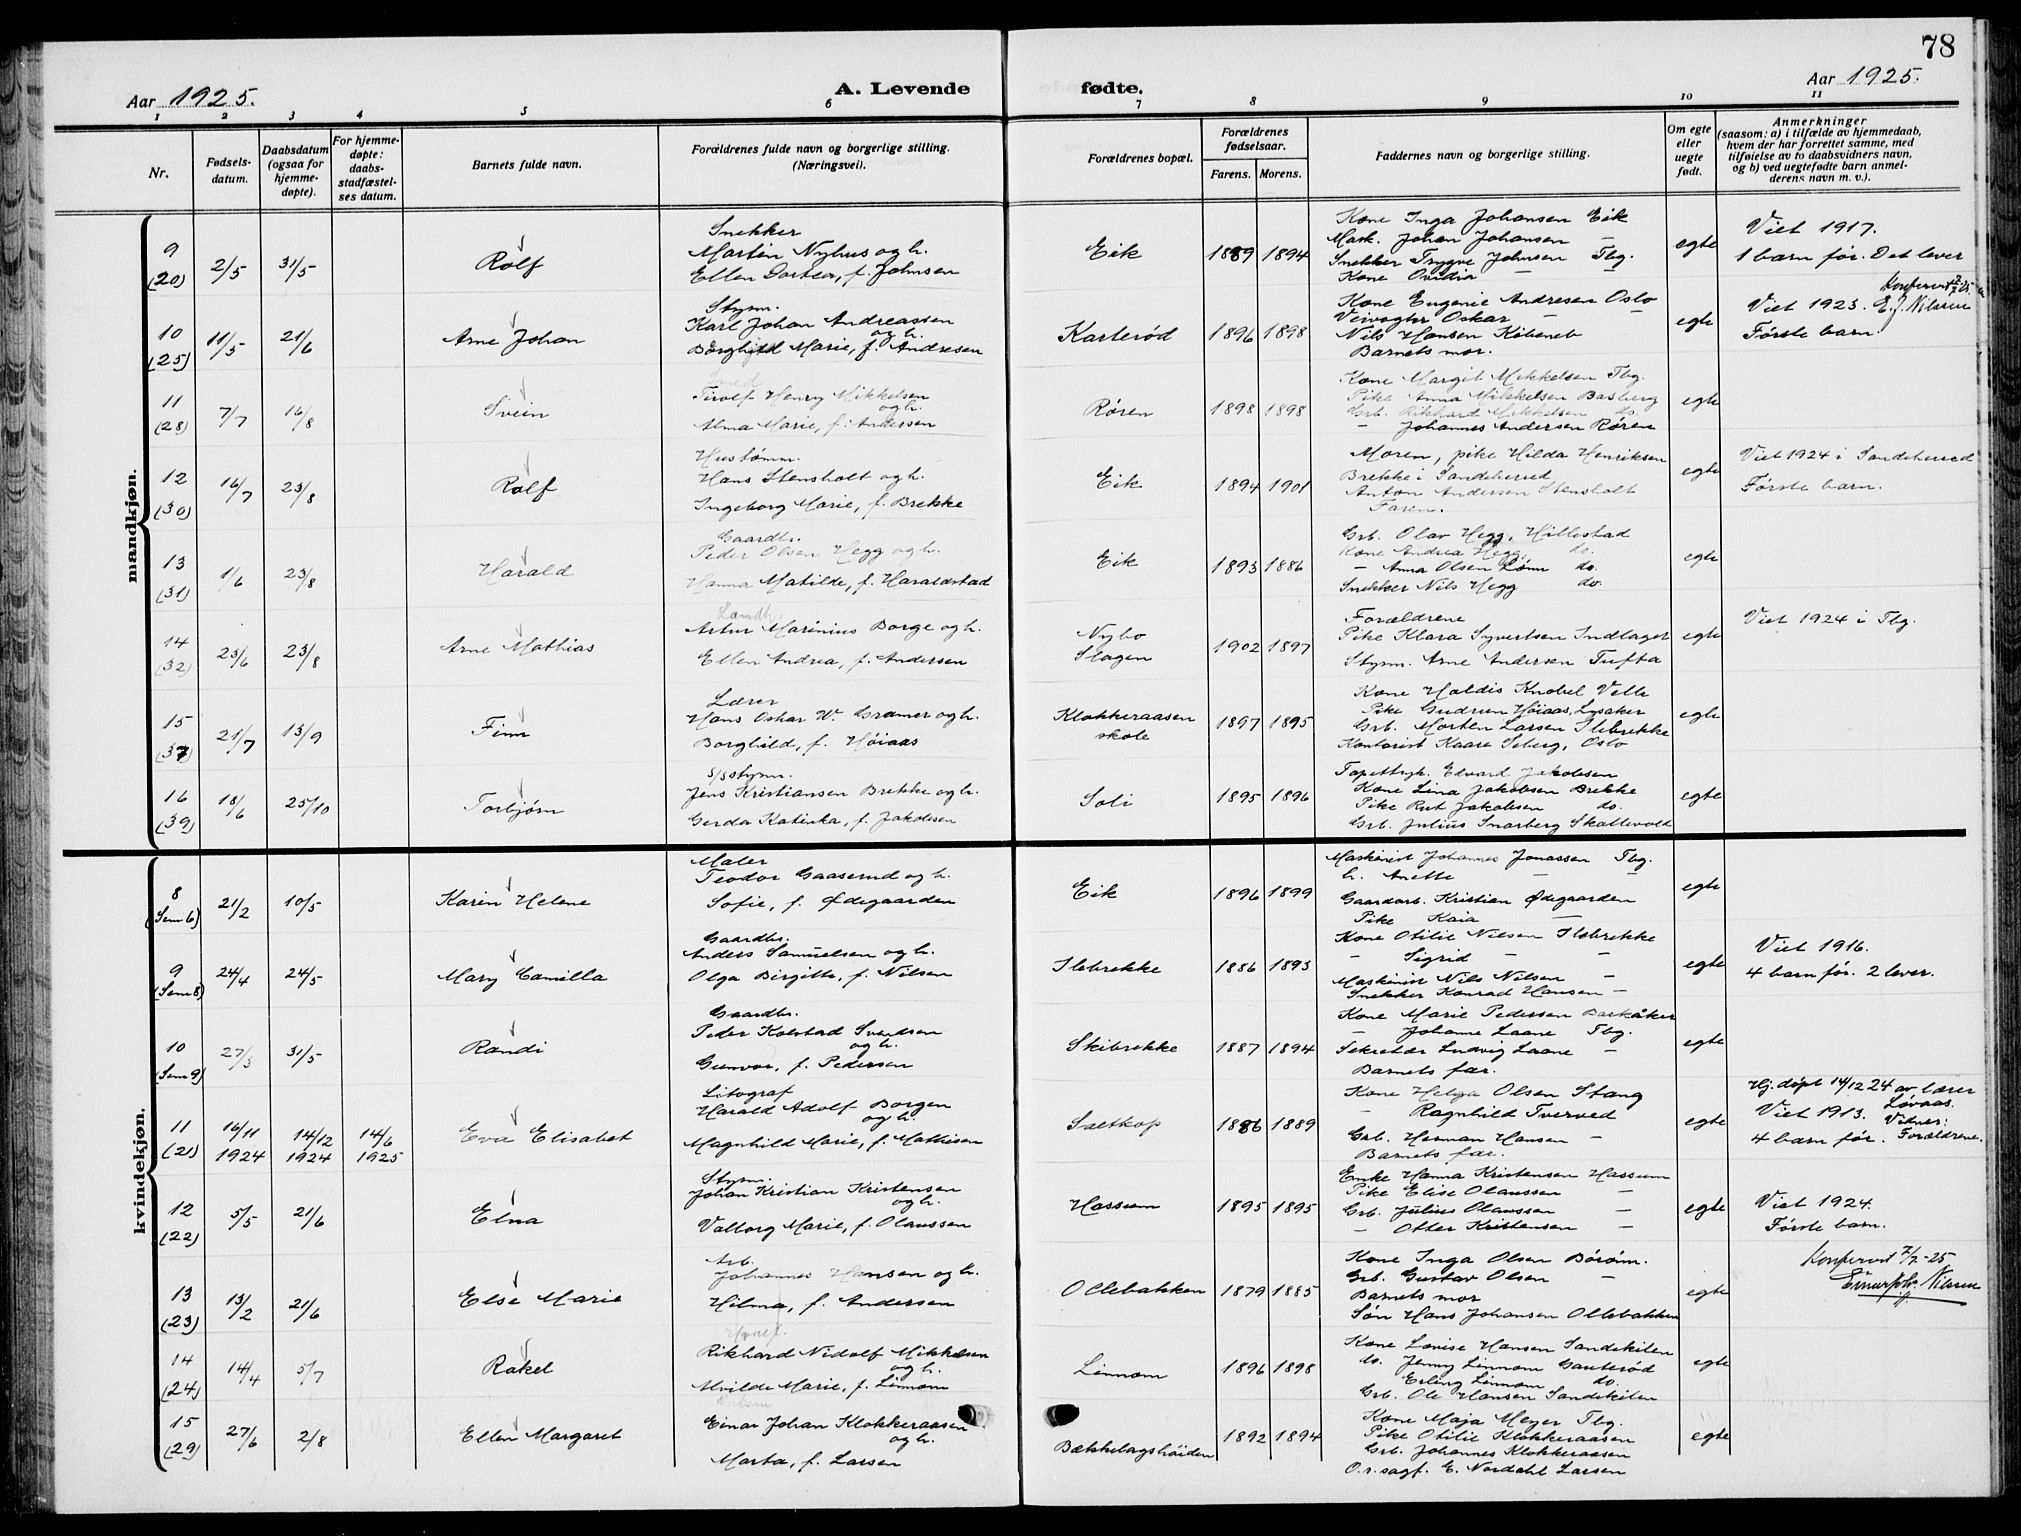 78
Aar 1925.
A. Levende
fødte.
Aar 1925.
1 2 3 4 5 6 7 8 9 10 11
Nr.
Fødsels-
datum.
Daabsdatum
(ogsaa for
hjemme-
døpte).
For hjemme-
døpte:
daabs-
stadfæstel-
ses datum.
Barnets fulde navn.
Forældrenes fulde navn og borgerlige stilling.
(Næringsvei).
Forældrenes bopæl.
Forældrenes
fødselsaar.
Farens. Morens.
Faddernes navn og borgerlige stilling.
Om egte
eller
uegte
født.
Anmerkninger
(saasom: a) i tilfælde av hjemmedaab,
hvem der har forrettet samme, med
tilføielse av to daabsvidners navn,
og b) ved uegtefødte barn anmel-
derens navn m. v.).
mandkjøn.
9
(20)
2/5
31/5
Rolf
Snekker
Martin Nyhus og h.
Ellen Dortea, f. Johnsen
Eik
1889 1894
Kone Inga Johansen Eik
Mask. Johan Johansen –
Snekker Trygve Johnsen Tbg.
Kone Ovidia – –
egte
Viet 1917.
1 barn før. Det lever
10
(25)
11/5
21/6
Arne Johan
Styrm.
Karl Johan Andreassen
og h.
Borghild Marie, f. Andresen
Karterød
1896 1898
Kone Eugenie Andresen Oslo
Veivogter Oskar – –
Nils Hansen Købeneb
Barnets mor.
egte
Konferert 7/7 25
Viet 1923. E. J. Nilsen
Første barn.
11
(28)
7/7
16/8
Svein
Smed
Tirolf Henry Mikkelsen
og h.
Alma Marie, f. Andersen
Røren
1898 1898
Kone Margit Mikkelsen Tbg.
Pike Anna Mikkelsen Basberg
Grb. Rikhard Mikkelsen do.
– Johannes Andersen Røren
egte
12
(30)
16/7
23/8
Rolf
Hustømm.
Hans Stensholt og h.
Ingeborg Marie, f. Brekke
Eik
1894 1901
Moren, pike Hilda Henriksen
Brekke i Sandeherred
Anton Andersen Stensholt
Faren.
egte
Viet 1924 i Sandeherred
Første barn.
13
(31)
1/6
23/8
Harald
Gaardbr.
Peder Olsen Hegg og h.
Hanna Matilde, f. Haraldstad
Eik
1893 1886
Grb. Olav Hegg, Hillestad
Kone Andrea Hegg, do.
– Anna Olsen Lønn do.
Snekker Nils Hegg do.
egte
14
(32)
23/6
23/8
Arne Mathias
Landbr.
Artur Marinius Borge og h.
Ellen Andrea, f. Andersen
Nybo
Slagen
1902 1897
Forældrene
Pike Klara Syvertsen Indlaget
Styrm. Arne Andersen Tufta
egte
Viet 1924 i Tbg.
15
(37)
21/7
13/9
Finn
Lærer
Hans Oskar W. Gramer og h.
Borghild, f. Høiaas
Klokkeraasen
skole
1897 1895
Kone Haldis Knobel Velle
Pike Gudrun Høiaas, Lysaker
Grb. Morten Larsen Ilebrekke
Kontorist Kaare Seberg, Oslo
egte
16
(39)
18/6
25/10
Torbjørn
S/S styrm.
Jens Kristiansen Brekke og h.
Gerda Katinka, f. Jakobsen
Soli
1895 1896
Tapettryk. Edvard Jakobsen
Kone Lina Jakobsen Brekke
Pike Rut Jakobsen do.
Grb. Julius Snarberg Skallevold
egte
kvindekjøn.
8
(Sem 6)
21/2
10/5
Karin Helene
Maler
Teodor Gaaserud og h.
Sofie, f. Ødegaarden
Eik
1896 1899
Maskinist Johannes Jonassen Tbg.
h. Anette – –
Gaardarb. Kristian Ødegaarden
Pike Kaia –
egte
9
(Sem 8)
24/4
24/5
Mary Camilla
Gaardbr.
Anders Samuelsen og h.
Olga Birgitte, f. Nilsen
Ilebrekke
1886 1893
Kone Otilie Nilsen Ilebrekke
– Sigrid – –
Maskinist Nils Nilsen –
Snekker Konrad Hansen –
egte
Viet 1916.
4 barn før. 2 lever.
10
(Sem 9)
27/3
31/5
Randi
Gaardbr.
Peder Kolstad Svendsen
og h.
Gunvor, f. Pedersen
Skibrekke
1887 1894
Kone Marie Pedersen Barkåker
– Johanne Laane Tbg.
Sekretær Ludvig Laane –
Barnets far.
egte
11
(21)
16/11
1924
14/12
1924
14/6
1925
Eva Elisabet
Litograf
Harald Adolf Borgen
og h.
Magnhild Marie, f. Mathisen
Saltkop
1886 1889
Kone Helga Olsen Stang
– Ragnhild Tverved
Grb. Herman Hansen –
Barnets far.
egte
Hj. døpt 14/12 24 av lærer
Løvaas.
Viet 1913. Vidnes:
4 barn før. Forældrene.
12
(22)
5/5
21/6
Elna
Styrm.
Johan Kristian Kristensen
og h.
Valborg Marie, f. Olaussen
Hassum
1895 1895
Enke Hanna Kristensen Hassum
Pike Elise Olaussen –
Grb. Julius Olaussen –
– Otter Kristensen –
egte
Viet 1924.
Første barn.
13
(23)
13/2
21/6
Else Marie
Arb.
Johannes Hansen og h.
Hilma, f. Andersen
Ollebakken
1879 1885
Kone Inga Olsen Børøm.
Grb. Gustav Olsen –
Barnets mor
Søn Hans Johansen Ollebakken
egte
Konferert 7/7-25
Einar Joh. Nilsen
14
(24)
14/4
5/7
Rakel
Hvalf.
Rikhard Nidolf Mikkelsen
og h.
Alvilde Marie, f. Linnom
Linnom
1896 1898
Kone Lovise Hansen Sandekilen
do. Jenny Linnom Gauterød
Erling Linnom do.
Grb. Ole Hansen Sandekilen
egte
15
(29)
27/6
2/8
Ellen Margaret
Einar Johan Klokkeraasen
og h.
Marta, f. Larsen
Bækkelagshøiden
1892 1894
Kone Maja Meyer Tbg.
Pike Otilie Klokkeraasen
Grb. Johannes Klokkeraasen
O.r.sagf. E. Nordahl Larsen
egte